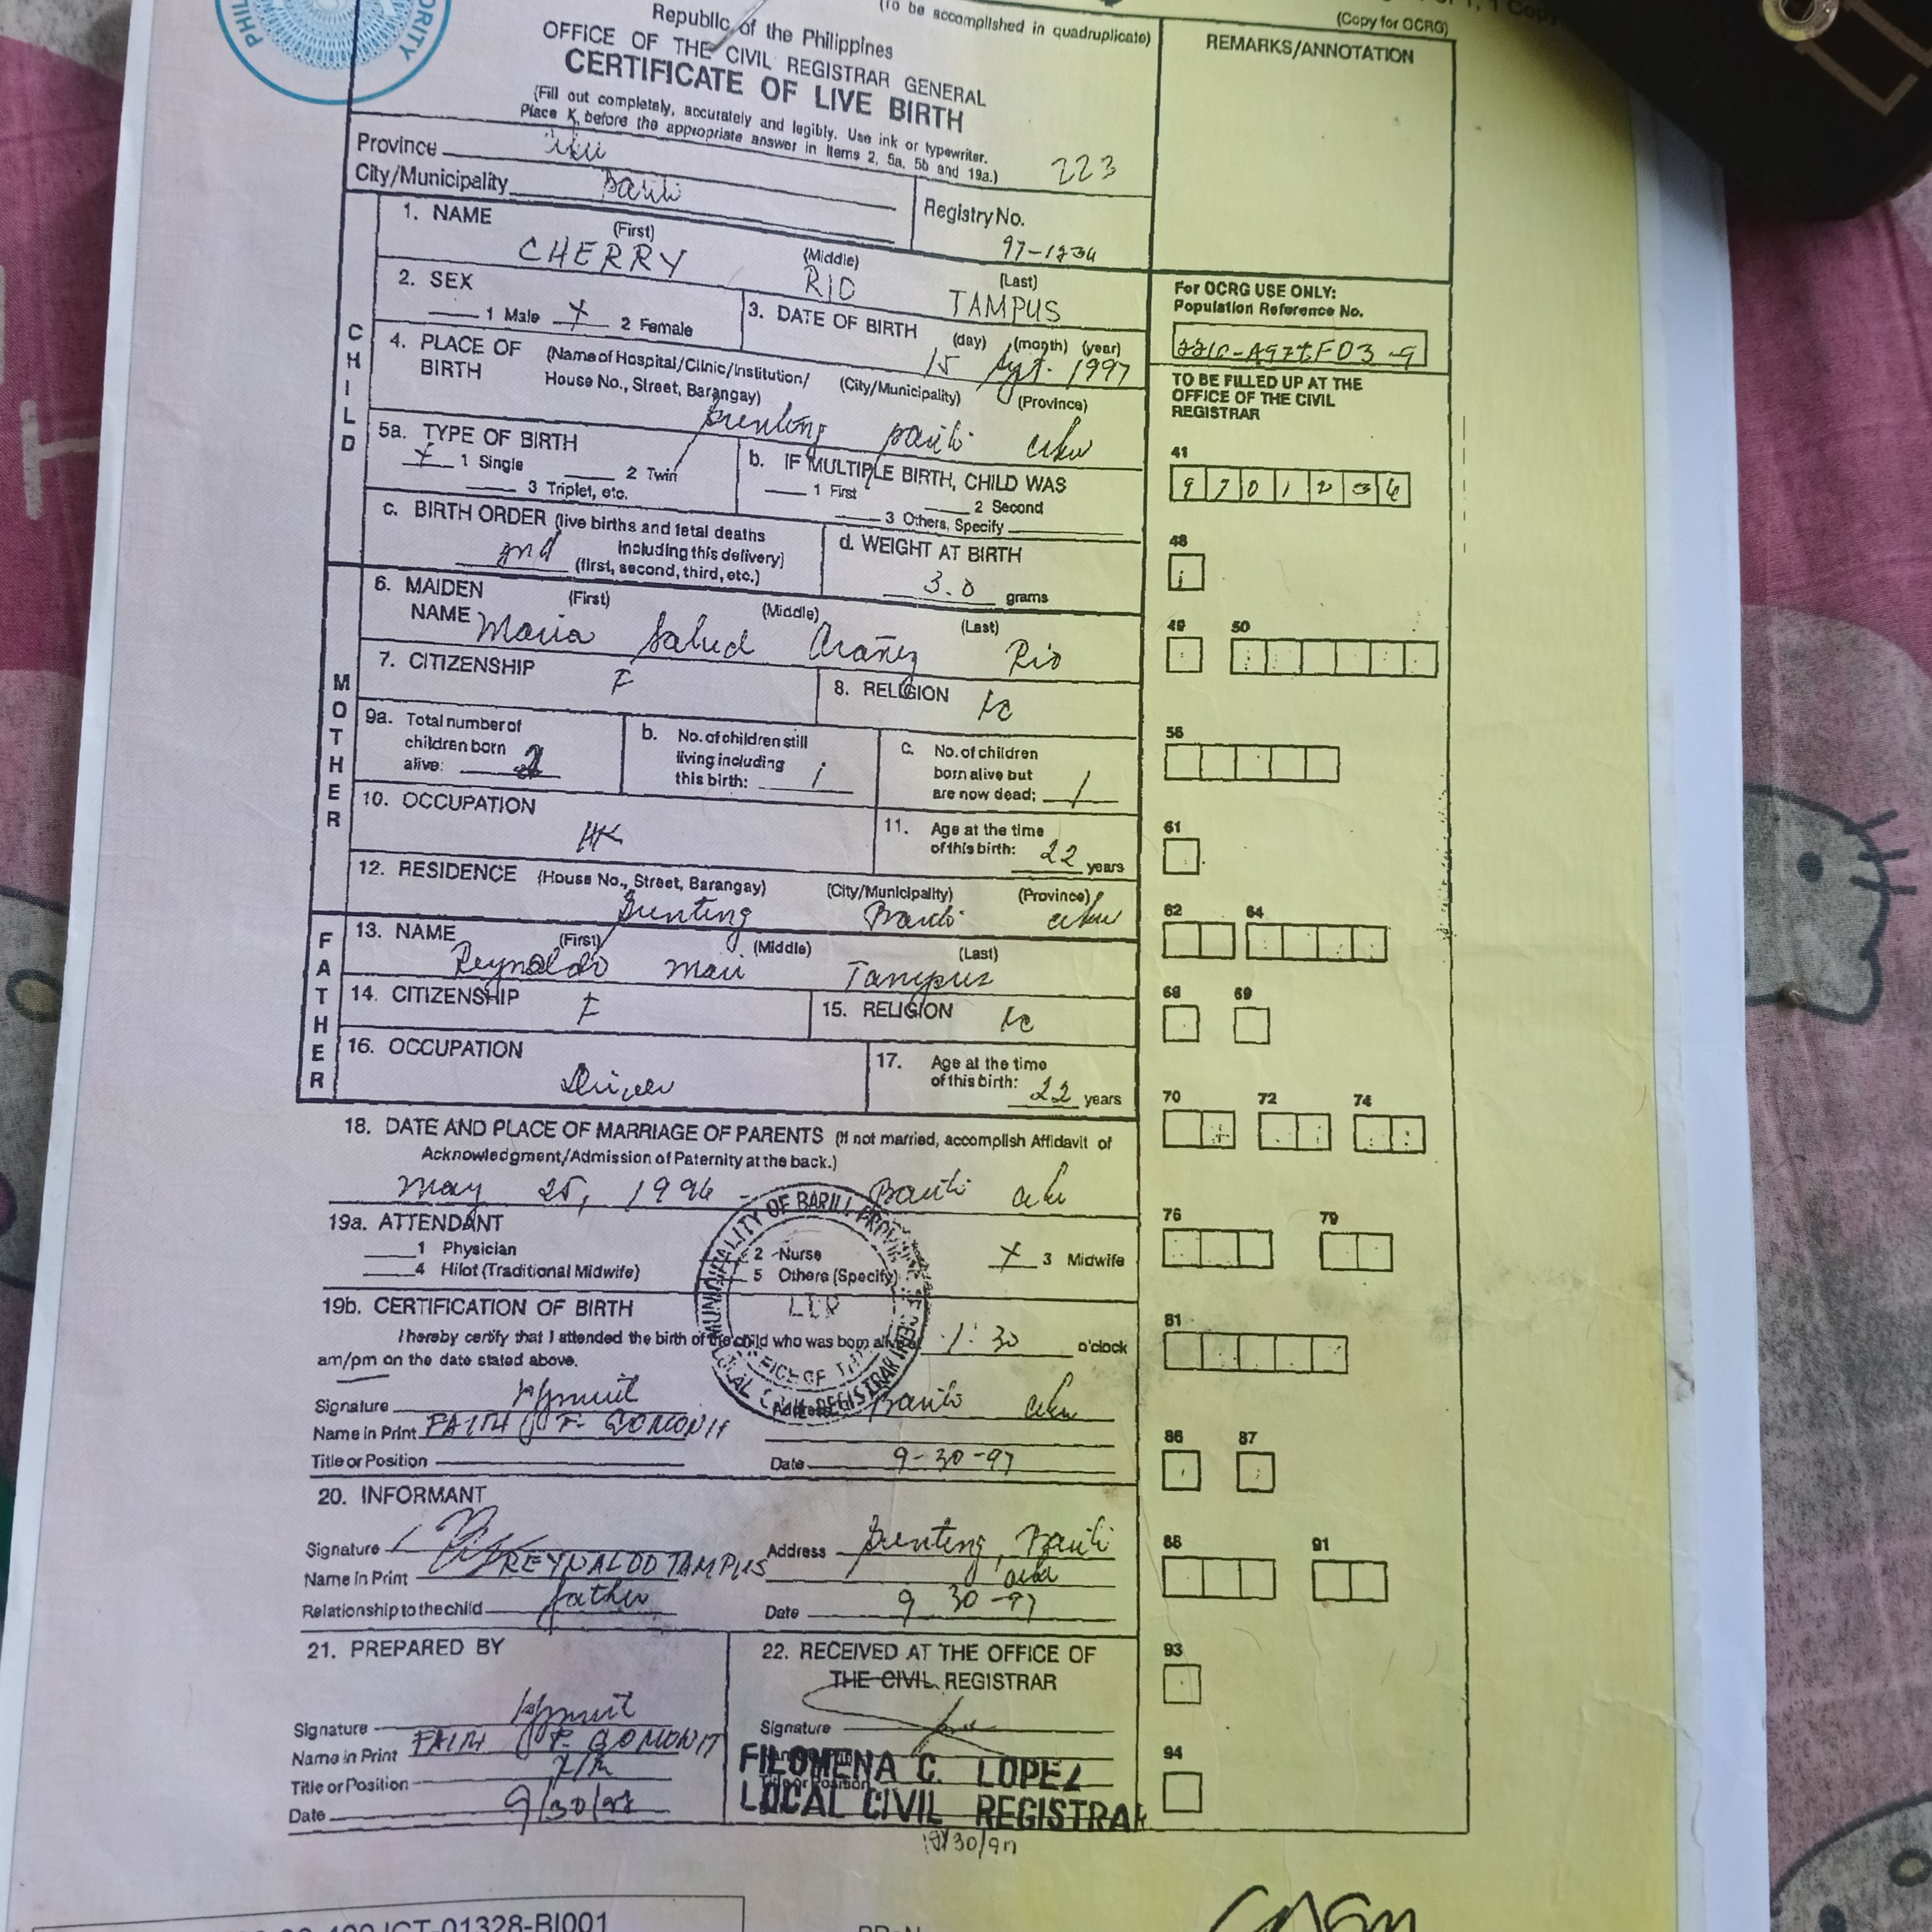 (To be accomplished in quadruplicate)
(Copy for OCRG)
Republic of the Philippines
OFFICE OF THE CIVIL REGISTRAR GENERAL
CERTIFICATE OF LIVE BIRTH
(Fill out completely, accurately and legibly. Use ink or typewriter.
Place X before the appropriate answer in Items 2, 5a, 5b and 19a.)
223
REMARKS/ANNOTATION
Province
City/Municipality Barili
Registry No.
97-1234
CHILD
1. NAME (First) (Middle) (Last)
CHERRY RIO TAMPUS
2. SEX
1 Male X 2 Female
3. DATE OF BIRTH (day) (month) (year)
15 Sept. 1997
For OCRG USE ONLY:
Population Reference No.
4. PLACE OF BIRTH (Name of Hospital/Clinic/Institution/ House No., Street, Barangay) (City/Municipality) (Province)
Gunting Barili Cebu
TO BE FILLED UP AT THE
OFFICE OF THE CIVIL
REGISTRAR
5a. TYPE OF BIRTH
X 1 Single 2 Twin
3 Triplet, etc.
b. IF MULTIPLE BIRTH, CHILD WAS
1 First 2 Second
3 Others, Specify
41
9 7 0 1 2 3 4
c. BIRTH ORDER (live births and fetal deaths
including this delivery)
2nd (first, second, third, etc.)
d. WEIGHT AT BIRTH
3.0 grams
48
MOTHER
6. MAIDEN NAME (First) (Middle) (Last)
Maria Salud Rio
49 50
7. CITIZENSHIP F
8. RELIGION RC
9a. Total number of
children born
alive: 2
b. No. of children still
living including
this birth: 1
c. No. of children
born alive but
are now dead: 1
56
10. OCCUPATION
HK
11. Age at the time
of this birth: 22 years
61
12. RESIDENCE (House No., Street, Barangay) (City/Municipality) (Province)
Gunting Barili Cebu
62 64
FATHER
13. NAME (First) (Middle) (Last)
Reynaldo Tampus
14. CITIZENSHIP F
15. RELIGION RC
68 69
16. OCCUPATION
Driver
17. Age at the time
of this birth: 22 years
70 72 74
18. DATE AND PLACE OF MARRIAGE OF PARENTS (If not married, accomplish Affidavit of
Acknowledgment/Admission of Paternity at the back.)
May 25, 1996 - Barili Cebu
19a. ATTENDANT
1 Physician 2 Nurse X 3 Midwife
4 Hilot (Traditional Midwife) 5 Others (Specify)
76 79
MUNICIPALITY OF BARILI PROVINCE OF CEBU
OFFICE OF THE
LOCAL CIVIL REGISTRAR
LCR
19b. CERTIFICATION OF BIRTH
I hereby certify that I attended the birth of the child who was born alive at 1:30 o'clock
am/pm on the date stated above.
81
Signature
Address Barili Cebu
Name in Print FAITH F. GOMONIT
Title or Position
Date 9-30-97
86 87
20. INFORMANT
Signature
Address Gunting, Barili
Cebu
Name in Print REYNALDO TAMPUS
Relationship to the child father
Date 9 30-97
88 91
21. PREPARED BY
Signature
Name in Print FAITH F. GOMONIT
Title or Position
Date 9/30/97
22. RECEIVED AT THE OFFICE OF
THE CIVIL REGISTRAR
Signature
FILOMENA C. LOPEZ
LOCAL CIVIL REGISTRAR
93
94